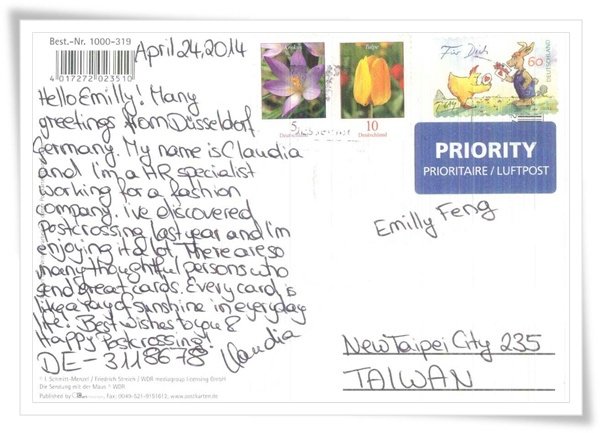 Best.-Nr. 1000-319
4 017272 023510
April 24, 2014
Hello Emilly! Many
greetings from Düsseldorf
Germany. My name is Claudia
and I'm a HR specialist
working for a fashion
company. I've discovered
Postcrossing last year and I'm
enjoying it a lot. There are so
many thoughtful persons who
send great cards. Every card is
like a ray of sunshine in everyday
life! Best wishes to you &
Happy Postcrossing!
DE-3118678 Claudia
© I. Schmitt-Menzel / Friedrich Streich / WDR mediagroup licensing GmbH
Die Sendung mit der Maus ® WDR
Published by
Fax: 0049-521-9151612, www.postkarten.de
Krokus
5
Deutschland
Tulpe
10
Deutschland
Für Dich
60
DEUTSCHLAND
PRIORITY
PRIORITAIRE / LUFTPOST
Emilly Feng
New Taipei City 235
TAIWAN